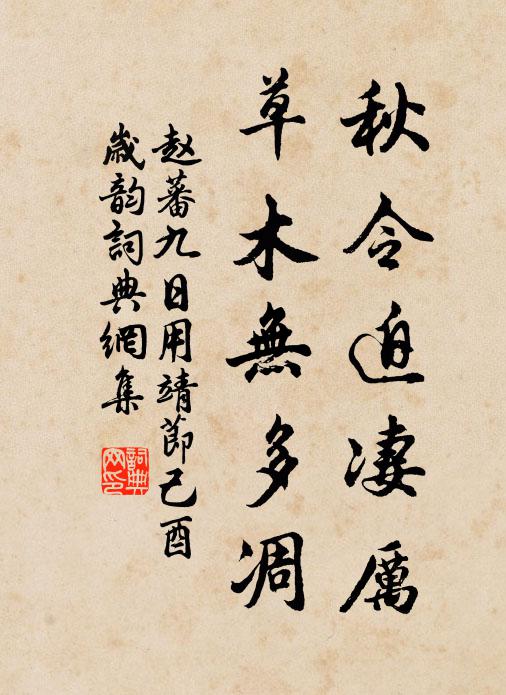 秋令迫淒厲
草木無多凋
赵蕃九日用靖節己酉
歲韵詞典網集
詞典网印